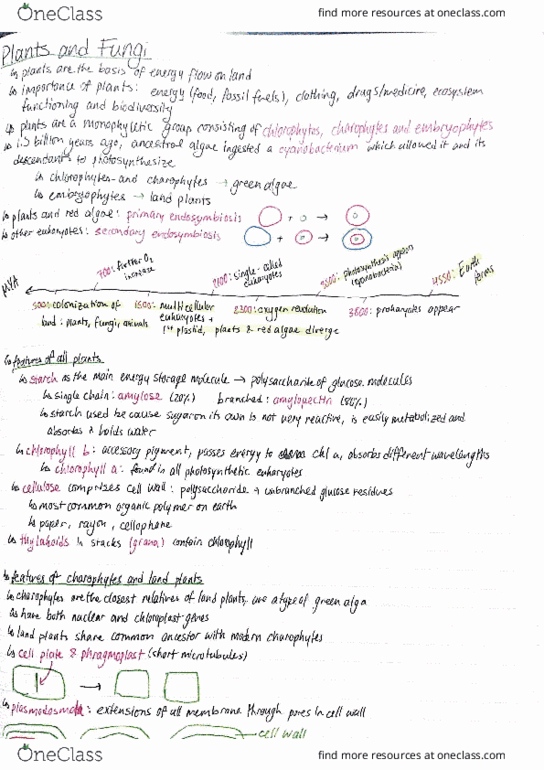 OneClass
find more resources at oneclass.com
Plants and Fungi
↳ plants are the basis of energy flow on land
↳ importance of plants: energy (food, fossil fuels), clothing, drugs/medicine, ecosystem
functioning and biodiversity
↳ plants are a monophyletic group consisting of chlorophytes, charophytes and embryophytes
↳ 1.5 billion years ago, ancestral algae ingested a cyanobacterium which allowed it and its
descendants to photosynthesize
↳ chlorophytes and charophytes → green algae
↳ embryophytes → land plants
↳ plants and red algae: primary endosymbiosis
↳ other eukaryotes: secondary endosymbiosis
MYA
700: further O2
increase
2100: single-celled
eukaryotes
3500: photosynthesis appears
(cyanobacteria)
4550: Earth
forms
500: colonization of
land: plants, fungi, animals
1500: multicellular
eukaryotes +
1° plastid, plants & red algae diverge
2300: oxygen revolution
3800: prokaryotes appear
↳ features of all plants
↳ starch as the main energy storage molecule → polysaccharide of glucose molecules
↳ single chain: amylose (20%) branched: amylopectin (80%)
↳ starch used because sugar on its own is not very reactive, is easily metabolized and
absorbs & holds water
↳ chlorophyll b: accessory pigment, passes energy to chl a, absorbs different wavelengths
↳ chlorophyll a: found in all photosynthetic eukaryotes
↳ cellulose comprises cell wall: polysaccharide → unbranched glucose residues
↳ most common organic polymer on earth
↳ paper, rayon, cellophane
↳ thylakoids in stacks (grana) contain chlorophyll
↳ features of charophytes and land plants
↳ charophytes are the closest relatives of land plants, are a type of green alga
↳ have both nuclear and chloroplast genes
↳ land plants share common ancestor with modern charophytes
↳ cell plate & phragmoplast (short microtubules)
↳ plasmodesmata: extensions of cell membrane through pores in cell wall
cell wall
OneClass
find more resources at oneclass.com